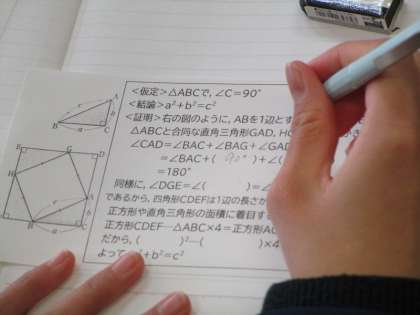 <仮定>△ABCで,∠C=90°
<結論>a²+b²=c²
<証明>右の図のように, ABを1辺とす
△ABCと合同な直角三角形GAD, HG
∠CAD=∠BAC+∠BAG+∠GAD
=∠BAC+( 90° )+∠(
=180°
同様に, ∠DGE=∠( )=∠
であるから, 四角形CDEFは1辺の長さが
正方形や直角三角形の面積に着目す
正方形CDEF-△ABC×4=正方形AG
だから, ( )²-( )×4
よって a²+b²=c²
A
c
b
B
a
C
E
G
D
H
c
A
b
B
a
C